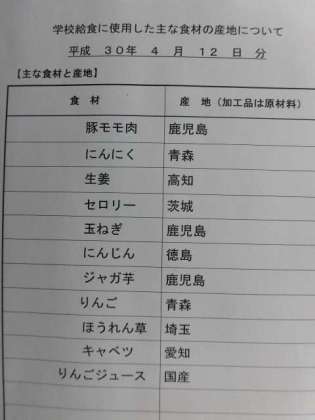 学校給食に使用した主な食材の産地について
平成 30年 4 月 12 日 分
【主な食材と産地】
食 材 産 地（加工品は原材料）
豚モモ肉 鹿児島
にんにく 青森
生姜 高知
セロリー 茨城
玉ねぎ 鹿児島
にんじん 徳島
ジャガ芋 鹿児島
りんご 青森
ほうれん草 埼玉
キャベツ 愛知
りんごジュース 国産